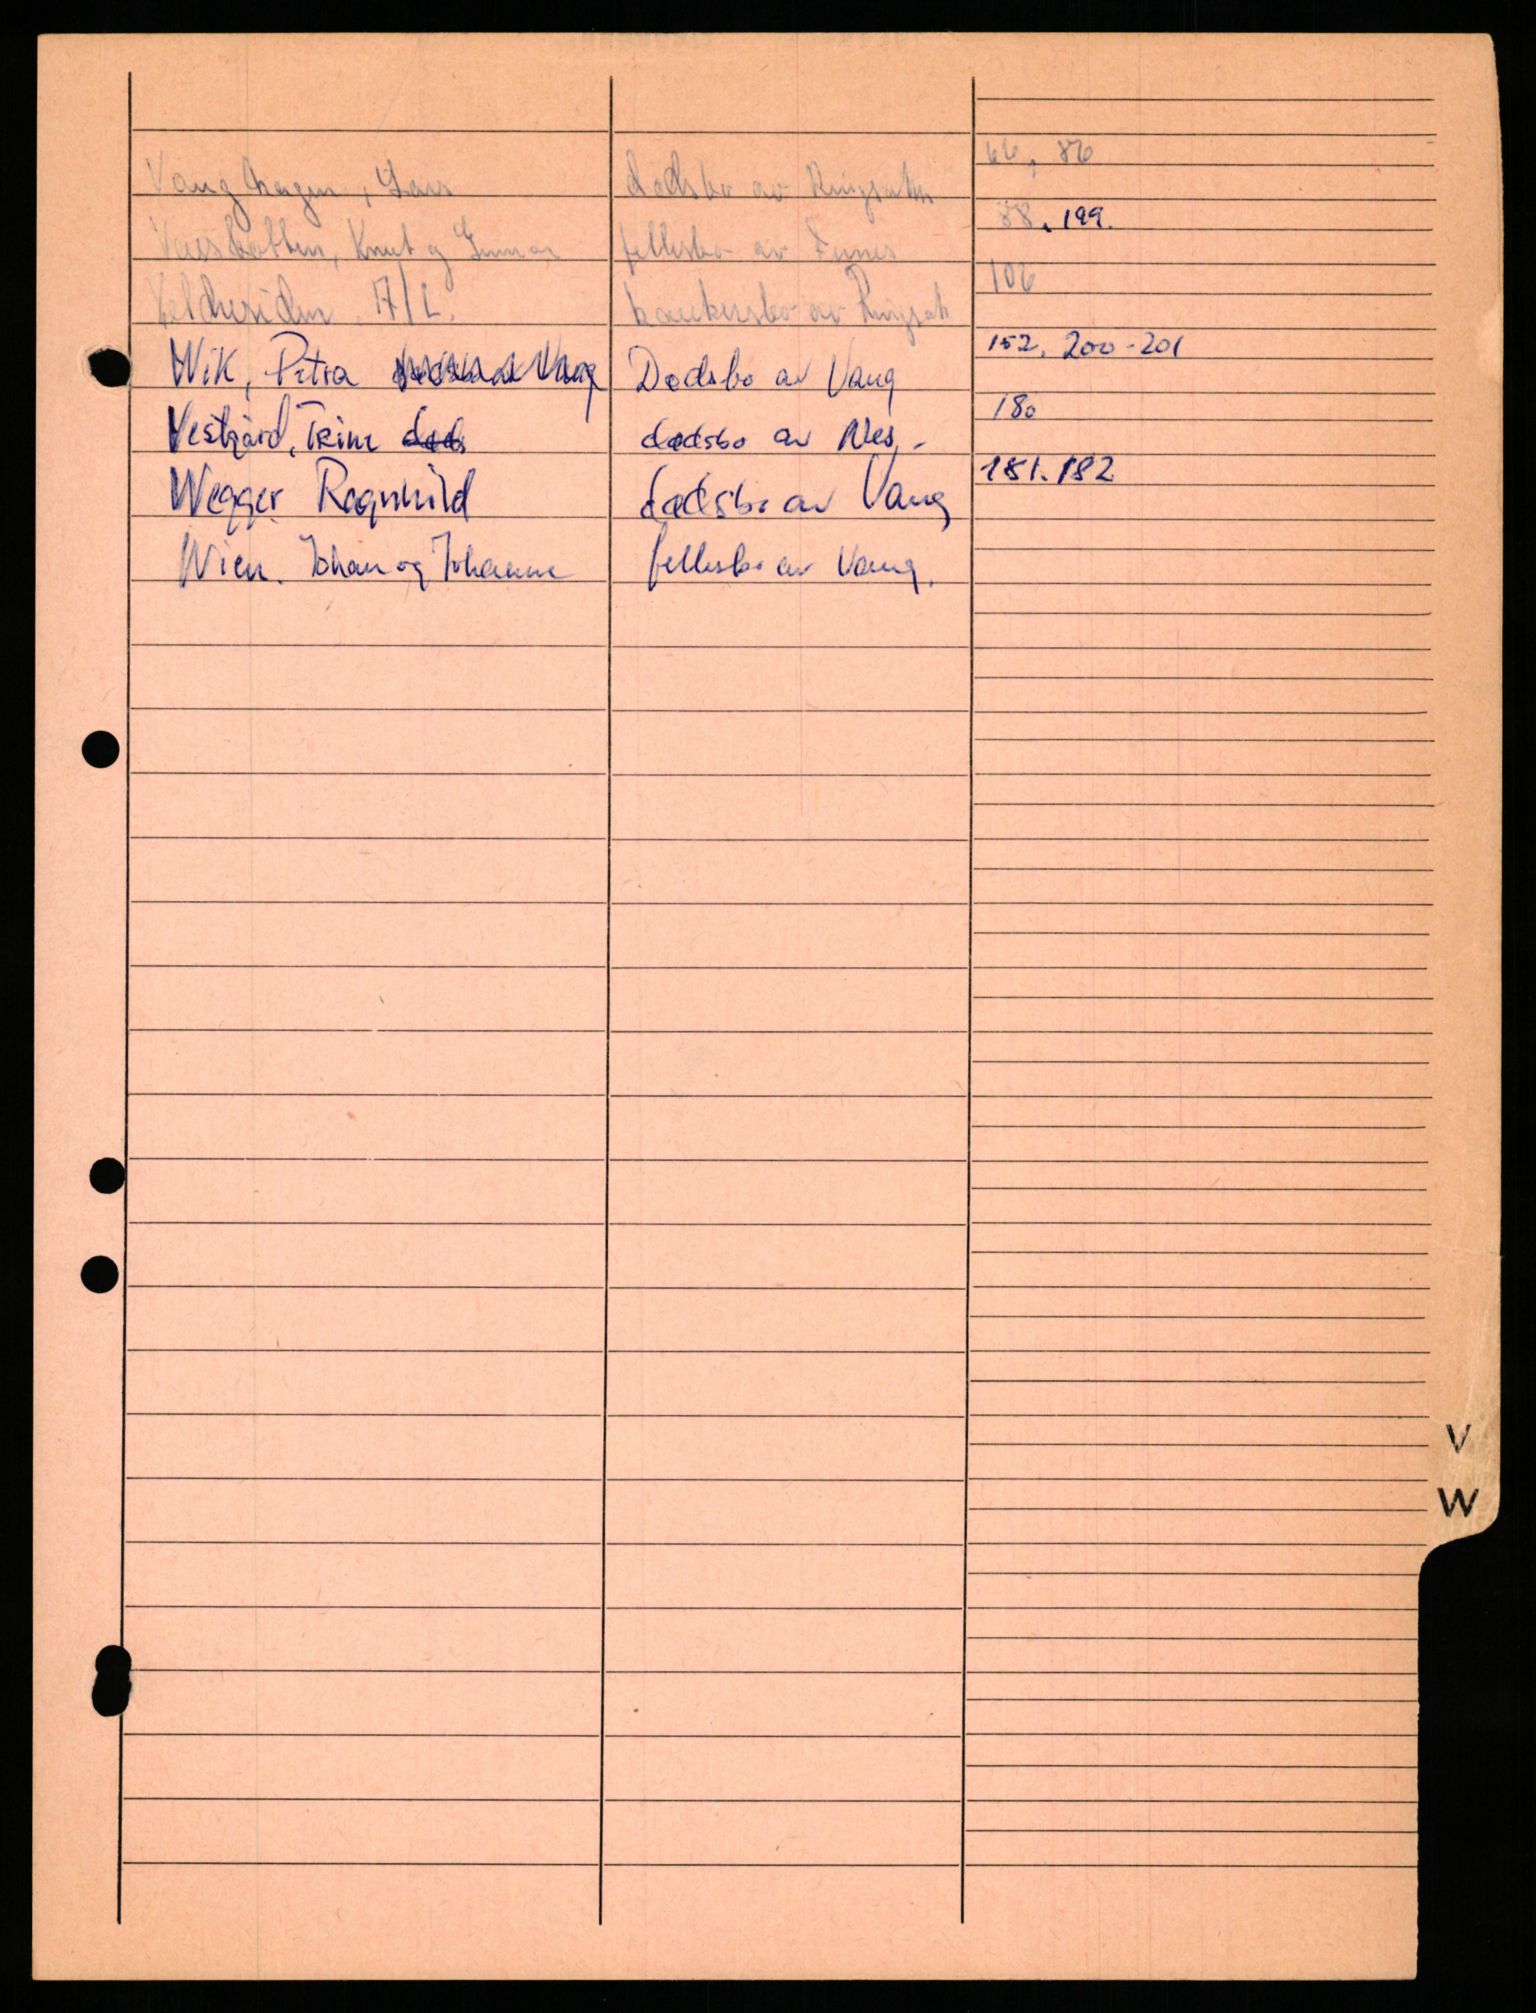 Vanghagen, Lars dødsbo av Ringsaker 66, 86
Knut og Gunnar fellesbo av Furnes 88, 199.
A/L. konkursbo av Ringsak 106
Wik, Petra Dødsbo av Vang 152, 200-201
Vestgård, Trine døds dødsbo av Nes - 180
Wegger Ragnhild dødsbo av Vang 181. 182
Wien. Johan og Johanne fellesbo av Vang.
V
W